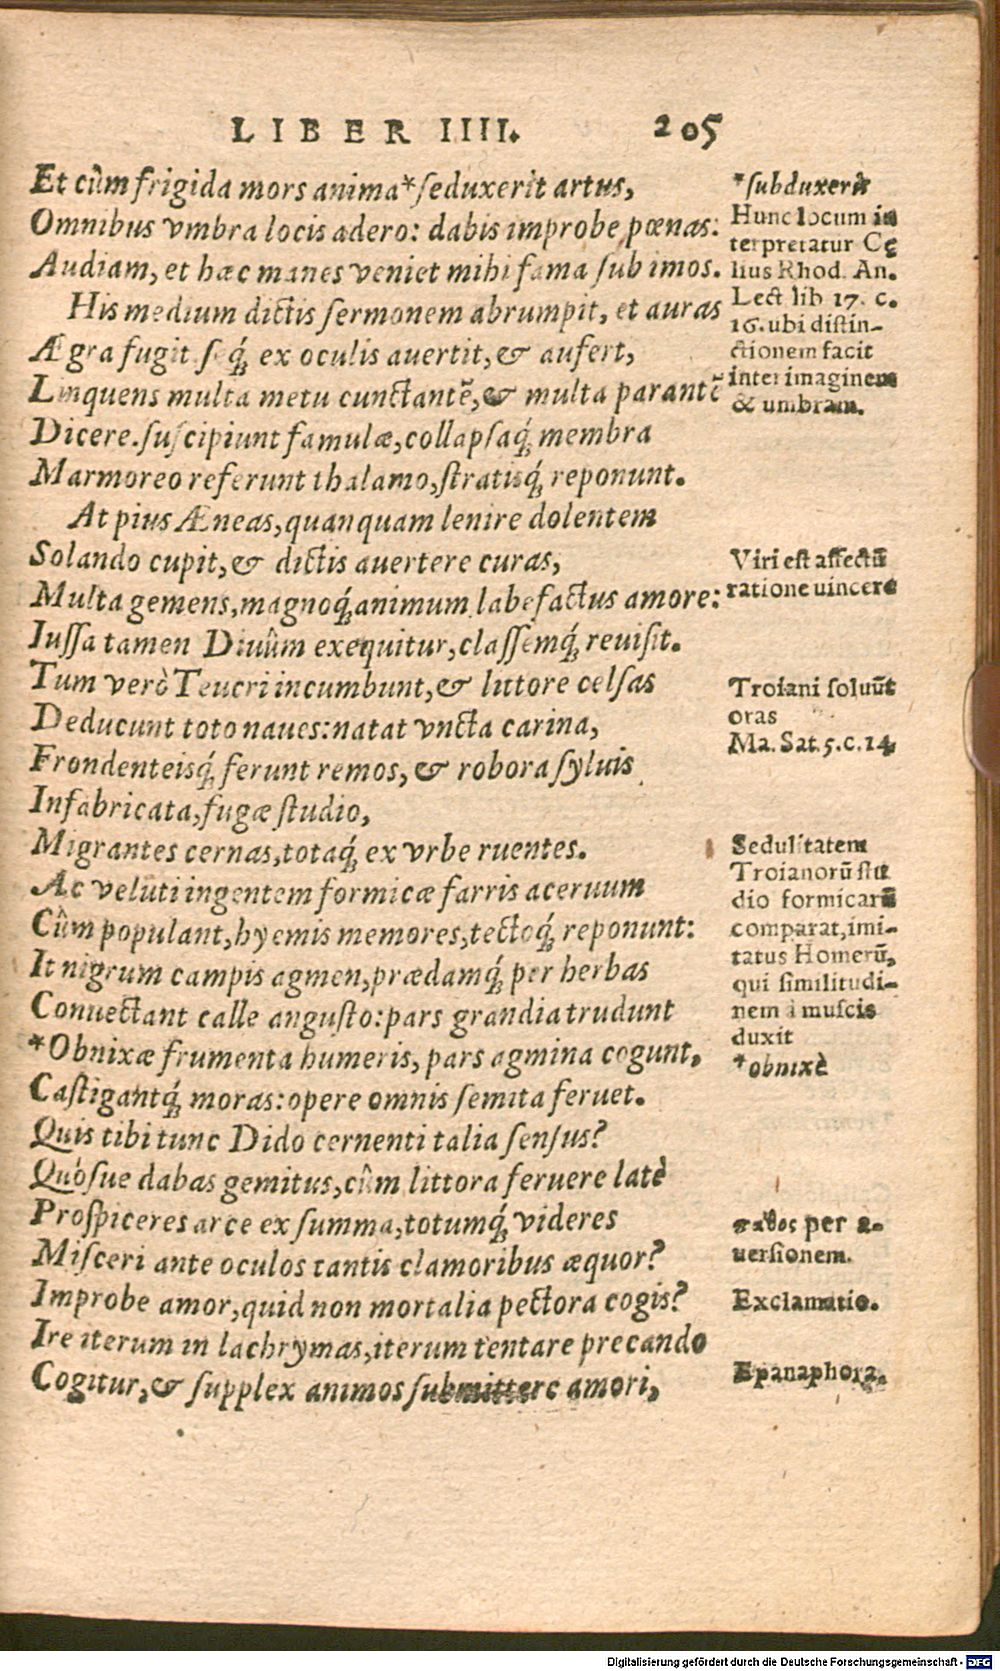 LIBER IIII. 205
Et cùm frigida mors anima*seduxerit artus,
Omnibus vmbra locis adero: dabis improbe pœnas:
Audiam, et hæc manes veniet mihi fama sub imos.
His medium dictis sermonem abrumpit, et auras
Ægra fugit seq́; ex oculis auertit, & aufert,
Linquens multa metu cunctantē, & multa parantē
Dicere. suscipiunt famulæ, collapsaq́; membra
Marmoreo referunt thalamo, stratisq́; reponunt.
At pius Æneas, quanquam lenire dolentem
Solando cupit, & dictis auertere curas,
Multa gemens, magnoq́; animum labefactus amore:
Iussa tamen Diuûm exequitur, classemq́; reuisit.
Tum verò Teucri incumbunt, & littore celsas
Deducunt toto naues: natat vncta carina,
Frondenteisq́; ferunt remos, & robora syluis
Infabricata, fugæ studio,
Migrantes cernas, totaq́; ex vrbe ruentes.
Ac veluti ingentem formicæ farris aceruum
Cùm populant, hyemis memores, tectoq́; reponunt:
It nigrum campis agmen, prædamq́; per herbas
Conuectant calle angusto: pars grandia trudunt
*Obnixæ frumenta humeris, pars agmina cogunt,
Castigantq́; moras: opere omnis semita feruet.
Quis tibi tunc Dido cernenti talia sensus?
Quósue dabas gemitus, cùm littora feruere latè
Prospiceres arce ex summa, totumq́; videres
Misceri ante oculos tantis clamoribus æquor?
Improbe amor, quid non mortalia pectora cogis?
Ire iterum in lachrymas, iterum tentare precando
Cogitur, & supplex animos submittere amori,
*subduxerit
Hunc locum in
terpretatur Cę
lius Rhod. An.
Lect lib 17. c.
16. ubi distin-
ctionem facit
inter imaginem
& umbram.
Viri est affectū
ratione uincere
Troiani soluūt
oras
Ma. Sat. 5. c. 14.
Sedulitatem
Troianorū stu
dio formicarū
comparat, imi-
tatus Homerū,
qui similitudi-
nem à muscis
duxit
*obnixè
παθος per a-
uersionem.
Exclamatio.
Epanaphora.
Digitalisierung gefördert durch die Deutsche Forschungsgemeinschaft - DFG